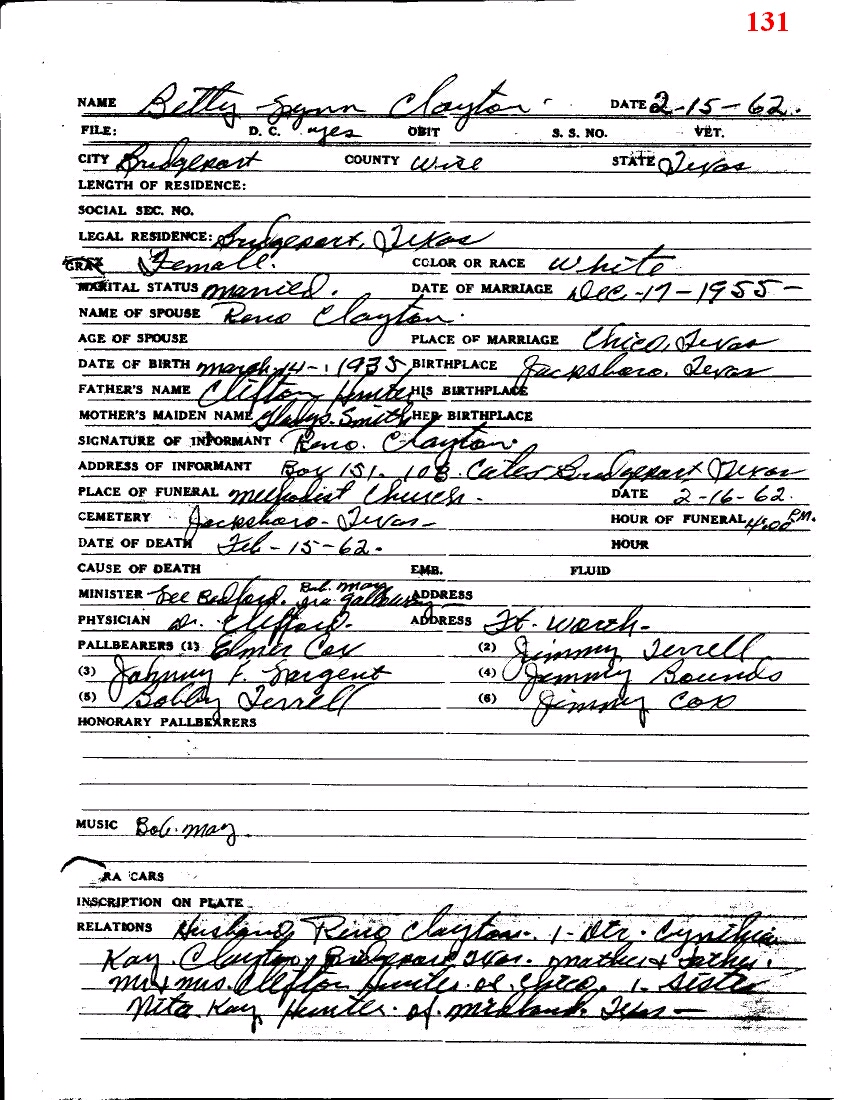 131
NAME Betty Lynn Clayton DATE 2-15-62.
FILE: D. C. yes OBIT S. S. NO. VET.
CITY Bridgeport COUNTY Wise STATE Texas
LENGTH OF RESIDENCE:
SOCIAL SEC. NO.
LEGAL RESIDENCE: Bridgeport, Texas
Female. COLOR OR RACE White
MARITAL STATUS married. DATE OF MARRIAGE Dec.-17-1955-
NAME OF SPOUSE Reno Clayton.
AGE OF SPOUSE PLACE OF MARRIAGE Chico, Texas
DATE OF BIRTH march-14-, 1935 BIRTHPLACE Jacksboro, Texas
FATHER'S NAME Clifton Hunter HIS BIRTHPLACE
MOTHER'S MAIDEN NAME Gladys. Smith HER BIRTHPLACE
SIGNATURE OF INFORMANT Reno. Clayton.
ADDRESS OF INFORMANT Box 151. 108. Cates Bridgeport, Texas
PLACE OF FUNERAL methodist Church - DATE 2-16-62.
CEMETERY Jacksboro-Texas- HOUR OF FUNERAL 4:00 P.M.
DATE OF DEATH Feb-15-62. HOUR
CAUSE OF DEATH EMB. FLUID
MINISTER Lee Bedford. Bob. may Ira Galloway ADDRESS
PHYSICIAN Dr. Clifford. ADDRESS Ft. Worth-
PALLBEARERS (1) Elmer Cox (2) Jimmy Terrell
(3) Johnny F. Sargent (4) Jimmy Bounds
(5) Bobby Terrell (6) Jimmy Cox
HONORARY PALLBEARERS
MUSIC Bob. may.
RA CARS
INSCRIPTION ON PLATE
RELATIONS Husband, Reno Clayton. 1-Dtr. Cynthia
Kay. Clayton, Bridgeport Tex. mother & father.
Mr & mrs. Clifton Hunter of Chico. 1. Sister
Nita Kay Hunter of. midland. Texas-